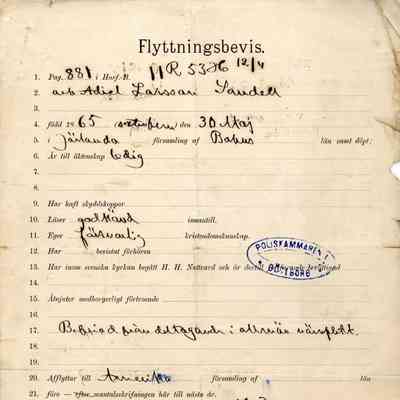 Flyttningsbevis.
1. Pag. 881 i Husf.-B. 12/4
2. arb Adiel Larsson Sandell
3.
4. född 18 65 den 30 Maj
5. i Järlanda församling af Bohus län samt döpt;
6. Är till äktenskap ledig
7.
8.
9. Har haft skyddskoppor
10. Läser godkänd innantill.
11. Eger försvarlig kristendomskunskap.
12. Har bevistat förhören
POLISKAMMAREN I
13. Har inom svenska kyrkan begått H. H. Nattvard och är dertill oförhindrad berättigad
GÖTEBORG
14.
15. Åtnjuter medborgerligt förtroende
16.
17. Befriad från deltagande i allmän värnplikt.
18.
19.
20. Afflyttar till Amerika församling af län
21. före — efter mantalsskrifningen här till nästa år.